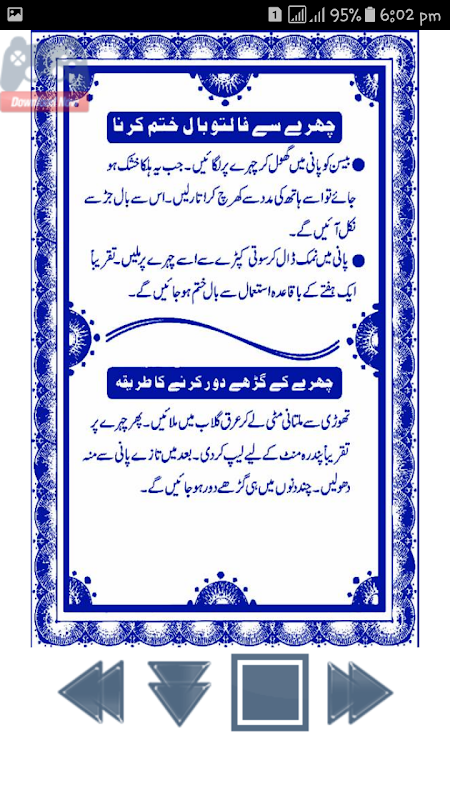 1 95% 6:02 pm
Download Now
چہرے سے فالتو بال ختم کرنا
● بیسن کو پانی میں گھول کر چہرے پر لگائیں۔ جب یہ ہلکا خشک ہو
جائے تو اسے ہاتھ کی مدد سے کھرچ کر اتار لیں۔ اس سے بال جڑ سے
نکل آئیں گے۔
● پانی میں نمک ڈال کر سوتی کپڑے سے اسے چہرے پر ملیں۔ تقریباً
ایک ہفتے کے باقاعدہ استعمال سے بال ختم ہو جائیں گے۔
چہرے کے گڑھے دور کرنے کا طریقہ
تھوڑی سے ملتانی مٹی لے کر عرق گلاب میں ملائیں۔ پھر چہرے پر
تقریباً پندرہ منٹ کے لیے لیپ کر دی۔ بعد میں تازے پانی سے منہ
دھولیں۔ چند دنوں میں ہی گڑھے دور ہو جائیں گے۔